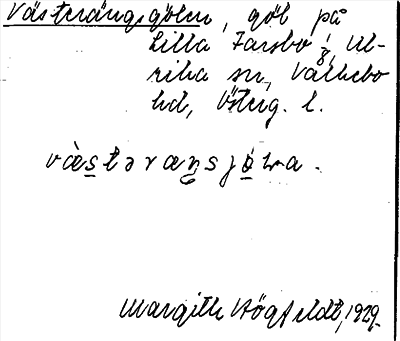 Västerängsgölen, göl på
Lilla Farsbo 1/8, Ul-
rika sn, Valkebo
hd, Österg. l.
vàstəraŋsjø̀lna.
Margith Högfeldt, 1929.